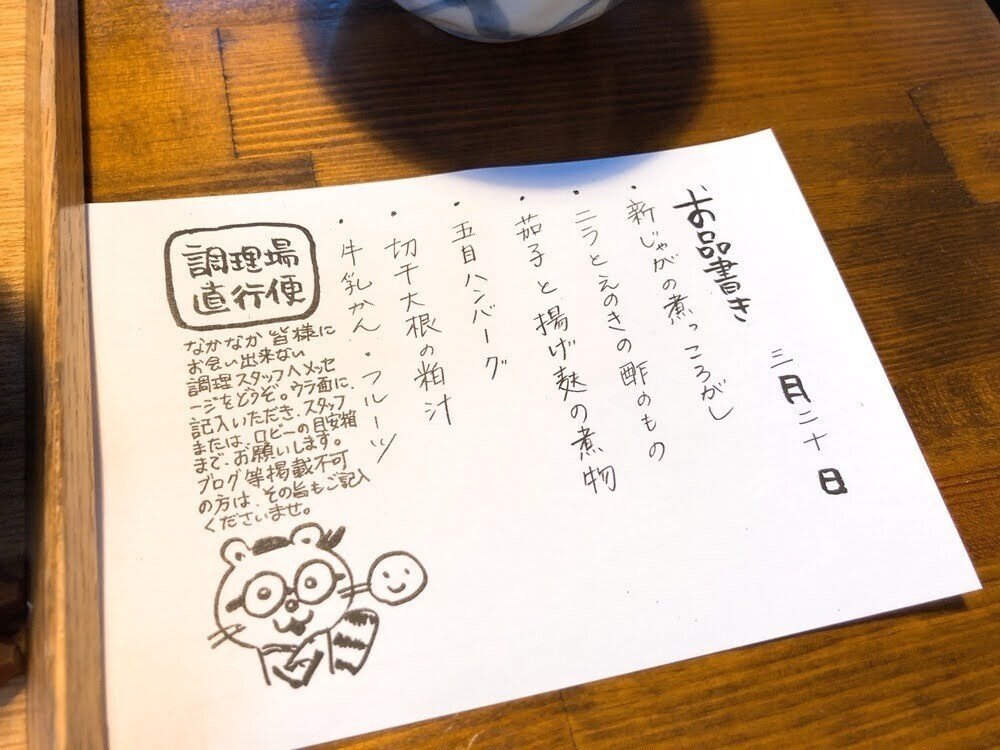 三月二十日
お品書き
・新じゃがの煮っころがし
・ニラとえのきの酢のもの
・茄子と揚げ麸の煮物
・五目ハンバーグ
・切干大根の粕汁
・牛乳かん・フルーツ
調理場
直行便
なかなか皆様に
お会い出来ない
調理スタッフへメッセ
ージをどうぞ。ウラ面に、
記入いただき、スタッフ
または、ロビーの目安箱
まで、お願いします。
ブログ等掲載不可
の方は、その旨もご記入
くださいませ。